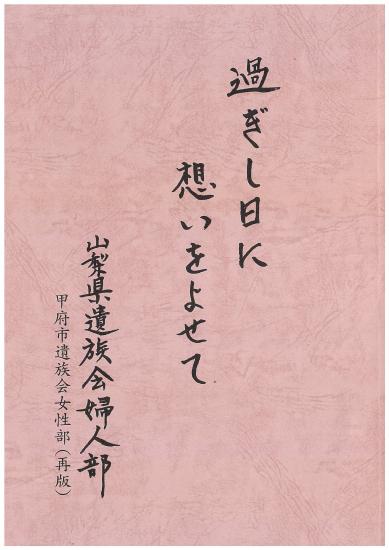 過ぎし日に
想いをよせて
山梨県遺族会婦人部
甲府市遺族会女性部(再版)